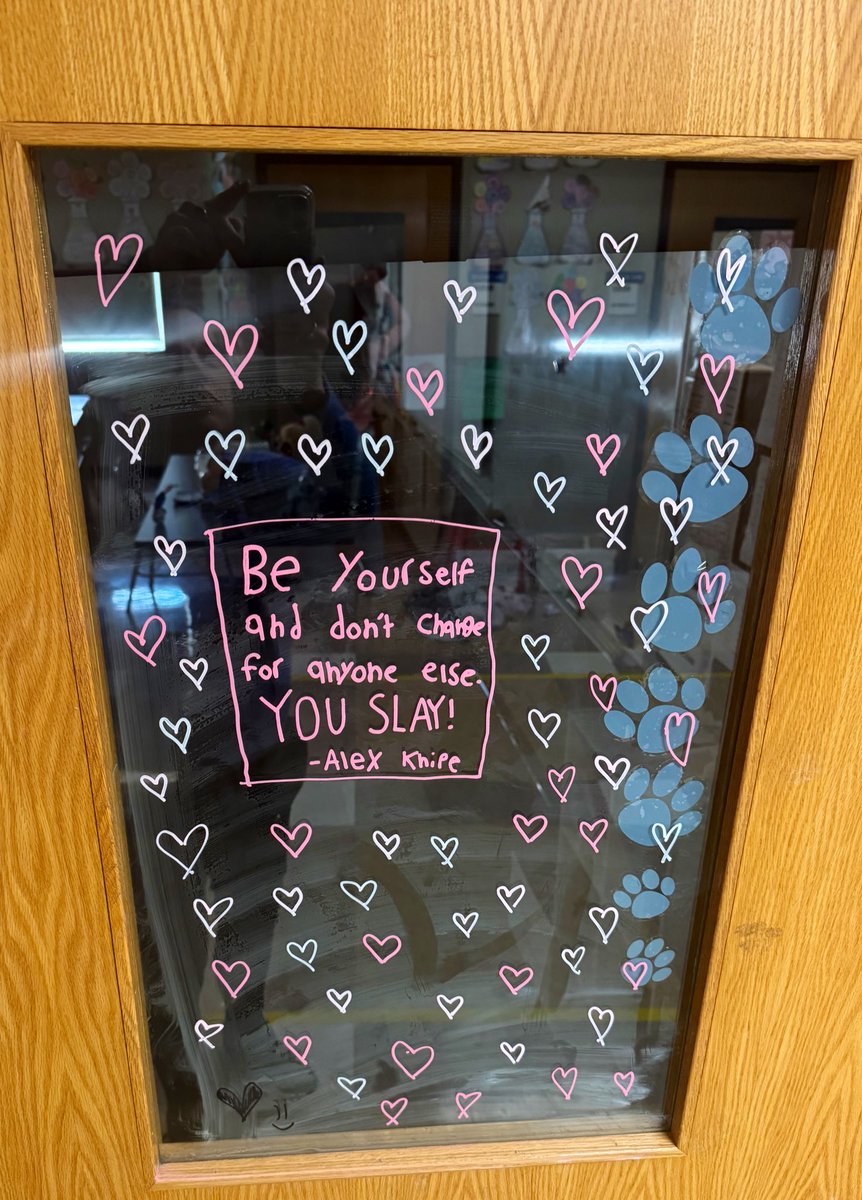 Be Yourself
and don't change
for anyone else.
YOU SLAY!
-Alex Knipe